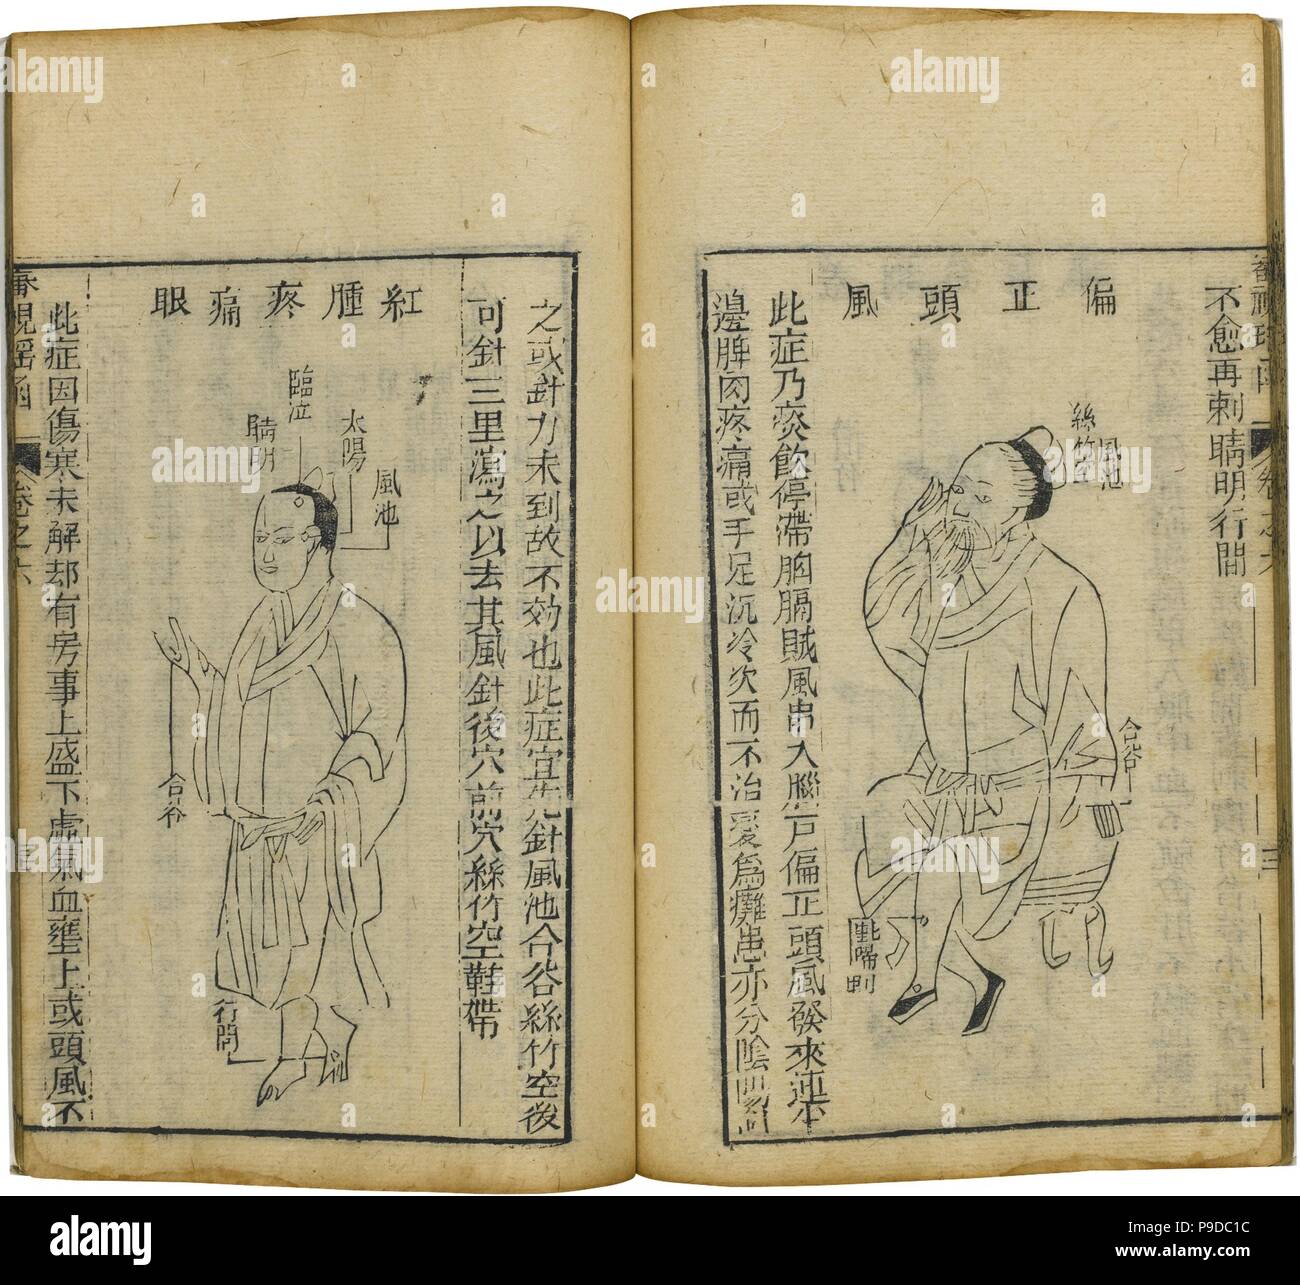 不愈再刺睛明行間
偏正頭風
絲竹空
風池
合谷
此症乃痰飲停滯胸膈賊風串入腦戶偏正頭風發來連
邊脾肉疼痛或手足沉冷久而不治變為癱患亦分陰
之或針力未到故不効也此症宜先針風池合谷絲竹空後
可針三里瀉之以去其風針後穴前穴絲竹空鞋帶
紅腫疼痛眼
臨泣
睛明
太陽
風池
合谷
行間
此症因傷寒未解却有房事上盛下虛氣血壅上或頭風不
審視瑤函
卷之六
alamy
Image ID: P9DC1C
www.alamy.com